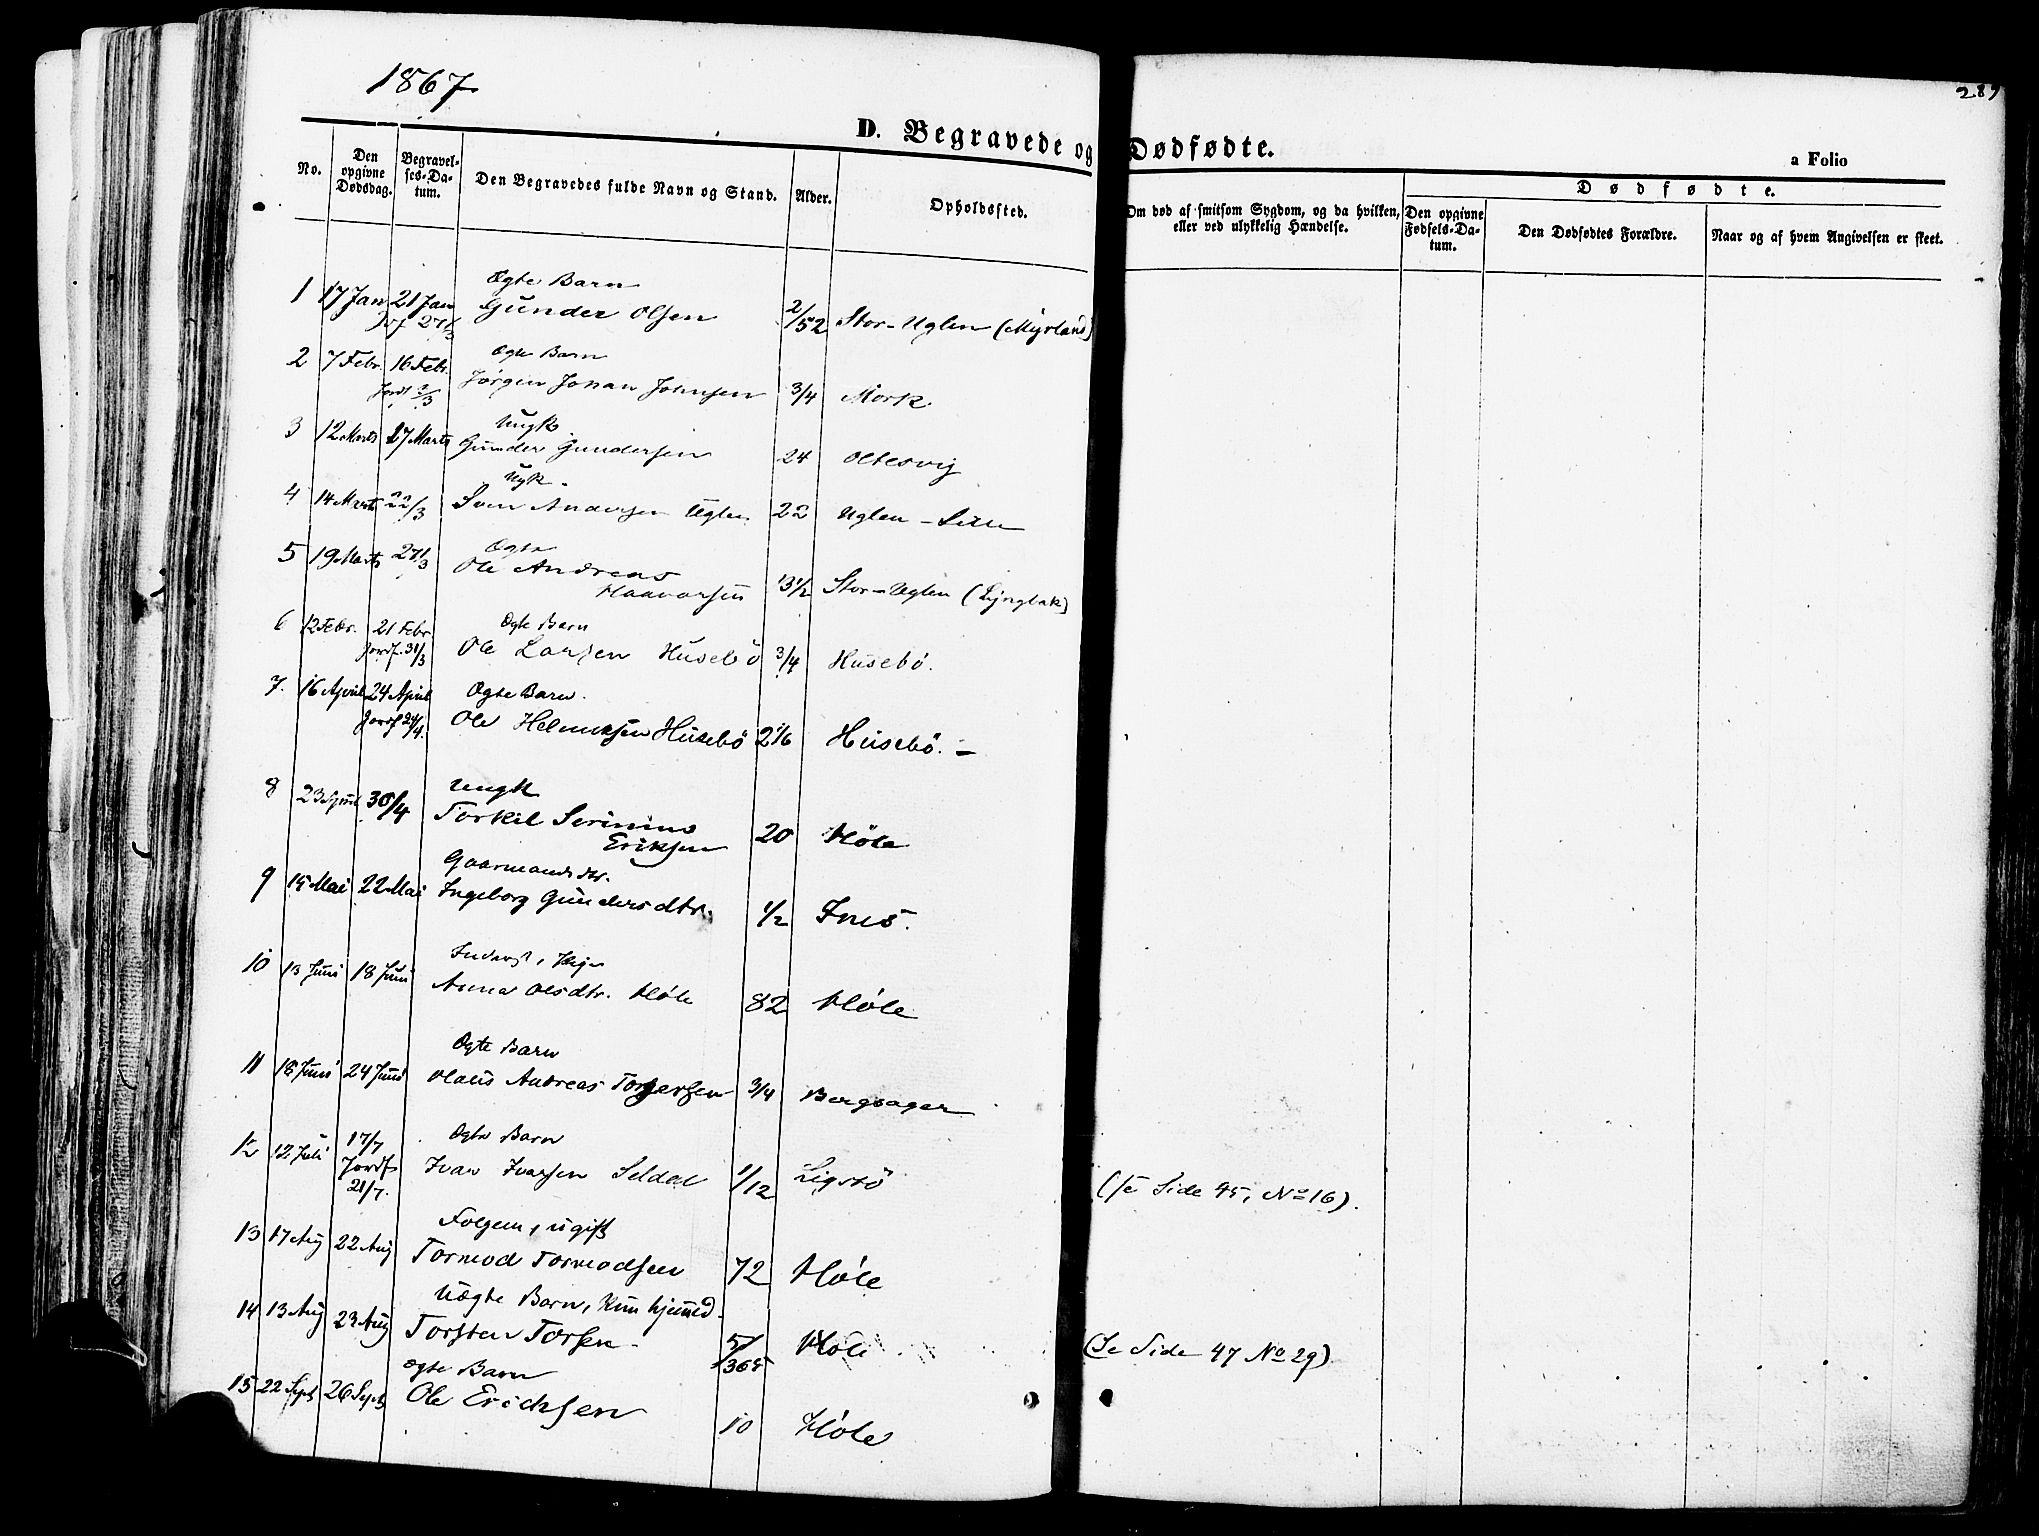 1867
289
D. Begravede og Dødfødte.
a Folio
No.
Den opgivne Dødsdag.
Begravelses-Datum.
Den Begravedes fulde Navn og Stand.
Alder.
Opholdssted.
Om død af smitsom Sygdom, og da hvilken, eller ved ulykkelig Hændelse.
Dødfødte.
Den opgivne Fødsels-Datum.
Den Dødfødtes Forældre.
Naar og af hvem Angivelsen er skeet.
Ægte Barn
1 17 Jan 21 Jan Gunder Olsen 2/52 Stor-Uglen (Myrland)
Ægte Barn
2 7 Febr. 16 Febr. Jørgen Johan Johnsen 3/4 Mork.
Ungk
3 12 Marts 17 Marts Gunder Gundersen 24 Oltesvig
Ugk.
4 14 Marts 22/3 Sven Andersen Uglen 22 Uglen - Lille
Ægte
5 19 Marts Ole Andreas
Haavarsen 13 1/2 Stor-Uglen (Lyngbak)
Ægte Barn
6 12 Febr. 21 Febr. Ole Larsen Husebö 3/4 Husebö.
Jordf. 31/3
Ægte Barn.
7. 16 April 24 April Ole Helmiksen Husebö 2 1/6 Husebö. -
Jordf 24/4.
Ungk
8 23 April 30/4 Torkil Serinius
Eriksen 20 Høle
Gaarmands dtr.
9 15 Mai 22 Mai Ingeborg Gundersdtr. 1/2 Ims.
Inderst,
10 13 Juni 18 Juni Anna Olsdtr. Høle 82 Høle
Ægte Barn
11 18 Juni 24 Juni Olaus Andreas Torgersen 3/4 Bergsager
Ægte Barn
12 12 Juli 17/7 Ivar Ivarsen Seldal 1/12 Ligstö (se Side 45, No 16).
Jordf
21/7.
Folgem, ugift
13 17 Aug 22 Aug Tormod Tormodsen 72 Høle
Uægte Barn, kun hjemmed.
14 13 Aug 23 Aug Torsten Torsen 5/365 Høle (Se Side 47 No 29).
Ægte Barn
15 22 Sept 26 Sept Ole Erichsen 10 Høle